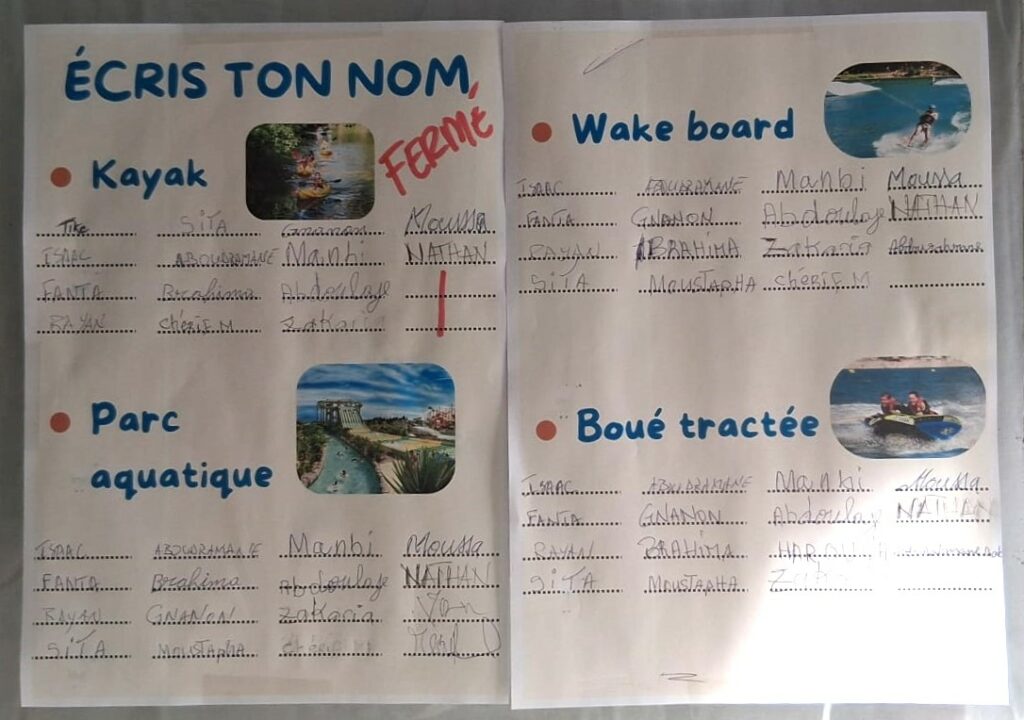 ÉCRIS TON NOM
FERMÉ
Kayak
Tike SiTA Gnanon Moussa
ISAAC ABOUDRAMANE Manbi NATHAN
FANTA Brahima Abdoulaye
RAYAN CHéRIF.M Zakaria
Parc
aquatique
ISAAC ABOUDRAMANE Manbi Moussa
FANTA Brahima Abdoulaye NATHAN
RAYAN GNANON Zakaria
SiTA MOUSTAPHA CHéRIF M
Wake board
ISAAC ABOUDRAMANE Manbi Moussa
FANTA GNANON Abdoulaye NATHAN
RAYAN IBRAHIMA Zakaria
SiTA MOUSTAPHA CHéRIF.M
Boué tractée
ISAAC ABOUDRAMANE Manbi Moussa
FANTA GNANON Abdoulay NATHAN
RAYAN BRAHIMA
SiTA MOUSTAPHA